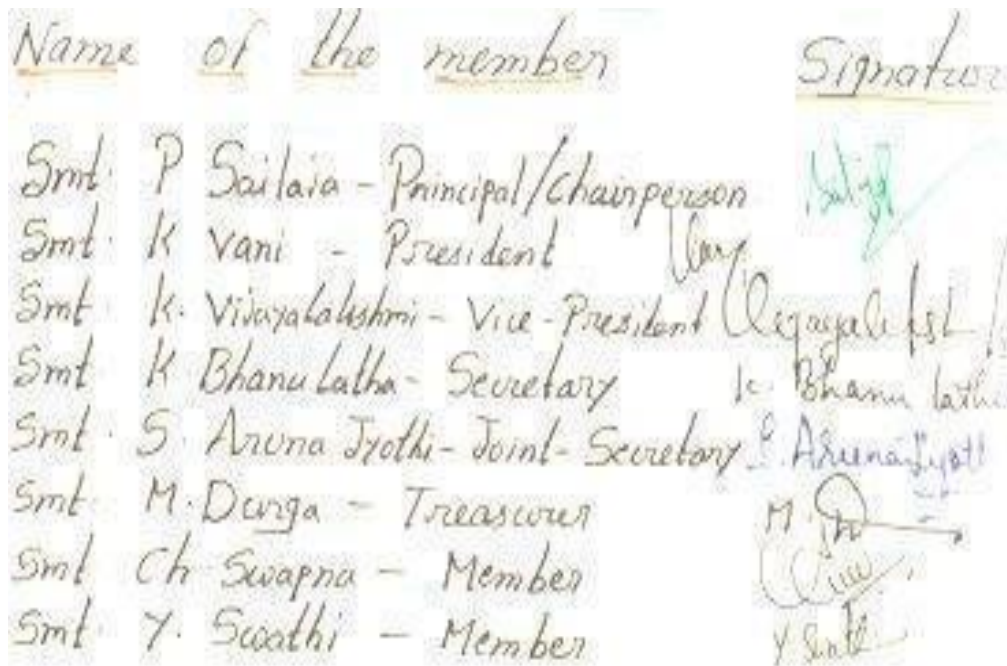 Name of the member Signatur
Smt. P Sailaia - Principal/Chairperson
Smt. K Vani - President
Smt K. Vijayalakshmi - Vice-President
Smt K Bhanu latha - Secretary K. Bhanu latha
Smt. S. Aruna Jyothi - Joint-Secretary S. Aruna Jyoti
Smt. M. Durga - Treasurer M.
Smt Ch Swapna - Member
Smt. Y. Swathi - Member